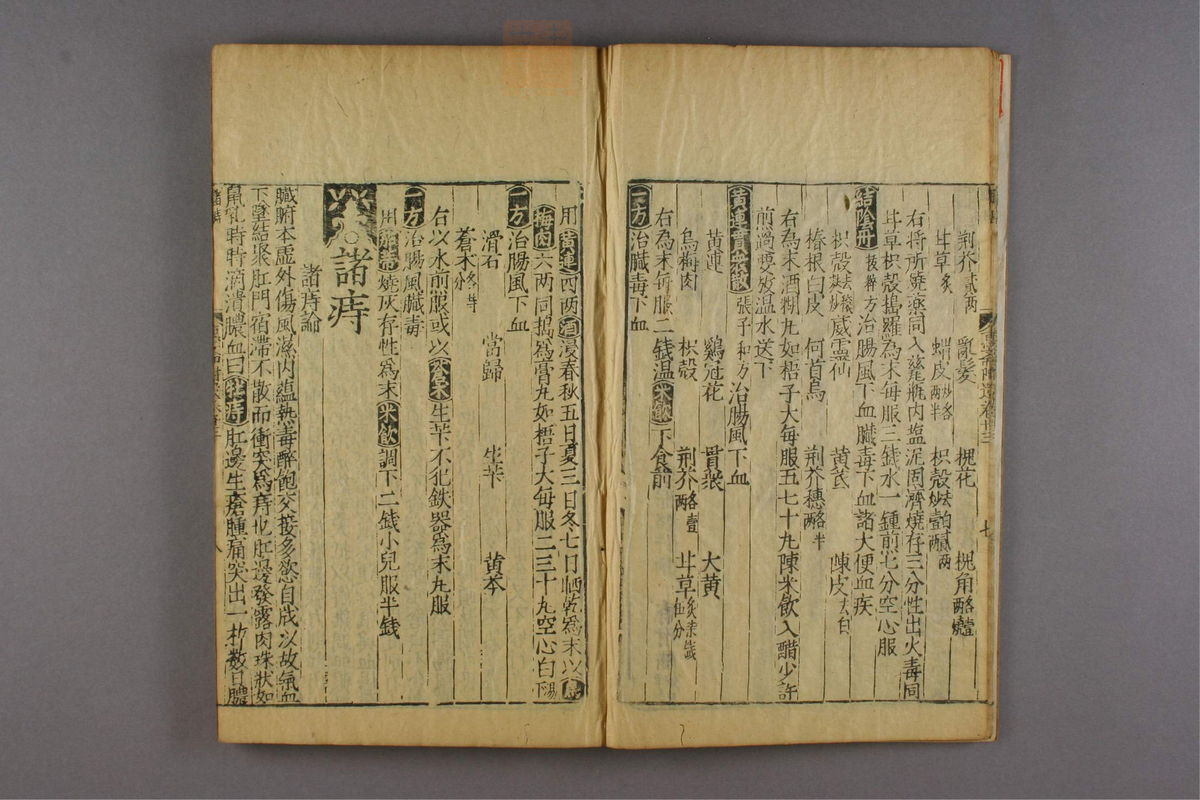 荆芥貳两 亂髮 槐花 槐角
甘草炙 蝟皮炒各两半 枳殼
右将所燒藥同入甆瓶内塩泥固濟燒存三分性出火毒同
甘草枳殼搗羅為末每服三錢水一鍾煎七分空心服
結陰丹 方治腸風下血臓毒下血諸大便血疾
枳殼 威靈仙 黄芪 陳皮去白
椿根白皮 何首烏 荆芥穗各半
右為末酒糊丸如梧子大每服五七十丸陳米飲入醋少許
煎過要放温水送下
黄連貫衆散 張子和方治腸風下血
黄連 鷄冠花 貫衆 大黄
烏梅肉 枳殼 荆芥 甘草炙
右為末每服二錢温米飲下食前
一方治臓毒下血
用黄連四两酒浸春秋五日夏三日冬七日晒乾為末以烏
梅肉六两同搗為膏丸如梧子大每服二三十丸空心白湯下
一方治腸風下血
滑石 當歸 生芐 黄芩
蒼术各半分
右以水煎服或以蒼术生芐不犯鉄器為末丸服
一方治腸風臓毒
用 蒂燒灰存性為末米飲調下二錢小兒服半錢
諸痔
諸痔論
臓腑本虚外傷風濕内蘊熱毒醉飽交接多慾自戕以故氣血
下墜結聚肛門宿滯不散而衝突為痔也肛邊發露肉珠狀如
鼠乳時時滴潰膿血曰牡痔肛邊生瘡腫痛突出一枚数日膿